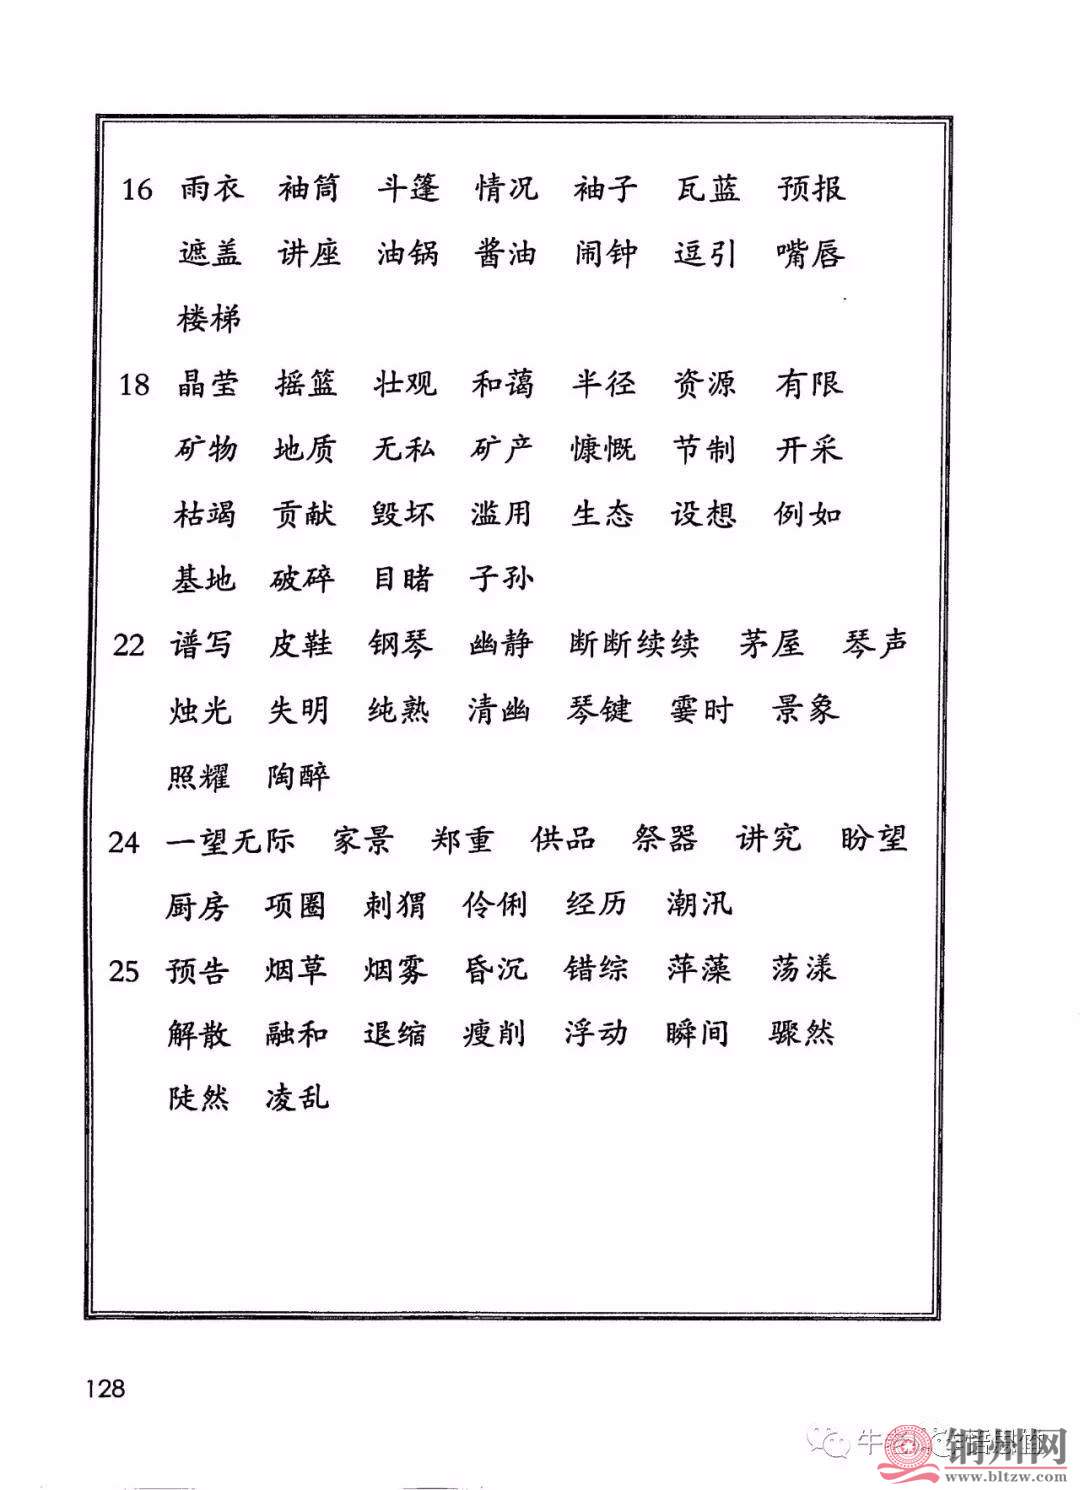 16 雨衣 袖筒 斗篷 情况 袖子 瓦蓝 预报
遮盖 讲座 油锅 酱油 闹钟 逗引 嘴唇
楼梯
18 晶莹 摇篮 壮观 和蔼 半径 资源 有限
矿物 地质 无私 矿产 慷慨 节制 开采
枯竭 贡献 毁坏 滥用 生态 设想 例如
基地 破碎 目睹 子孙
22 谱写 皮鞋 钢琴 幽静 断断续续 茅屋 琴声
烛光 失明 纯熟 清幽 琴键 霎时 景象
照耀 陶醉
24 一望无际 家景 郑重 供品 祭器 讲究 盼望
厨房 项圈 刺猬 伶俐 经历 潮汛
25 预告 烟草 烟雾 昏沉 错综 萍藻 荡漾
解散 融和 退缩 瘦削 浮动 瞬间 骤然
陡然 凌乱
128
www.bltzw.com